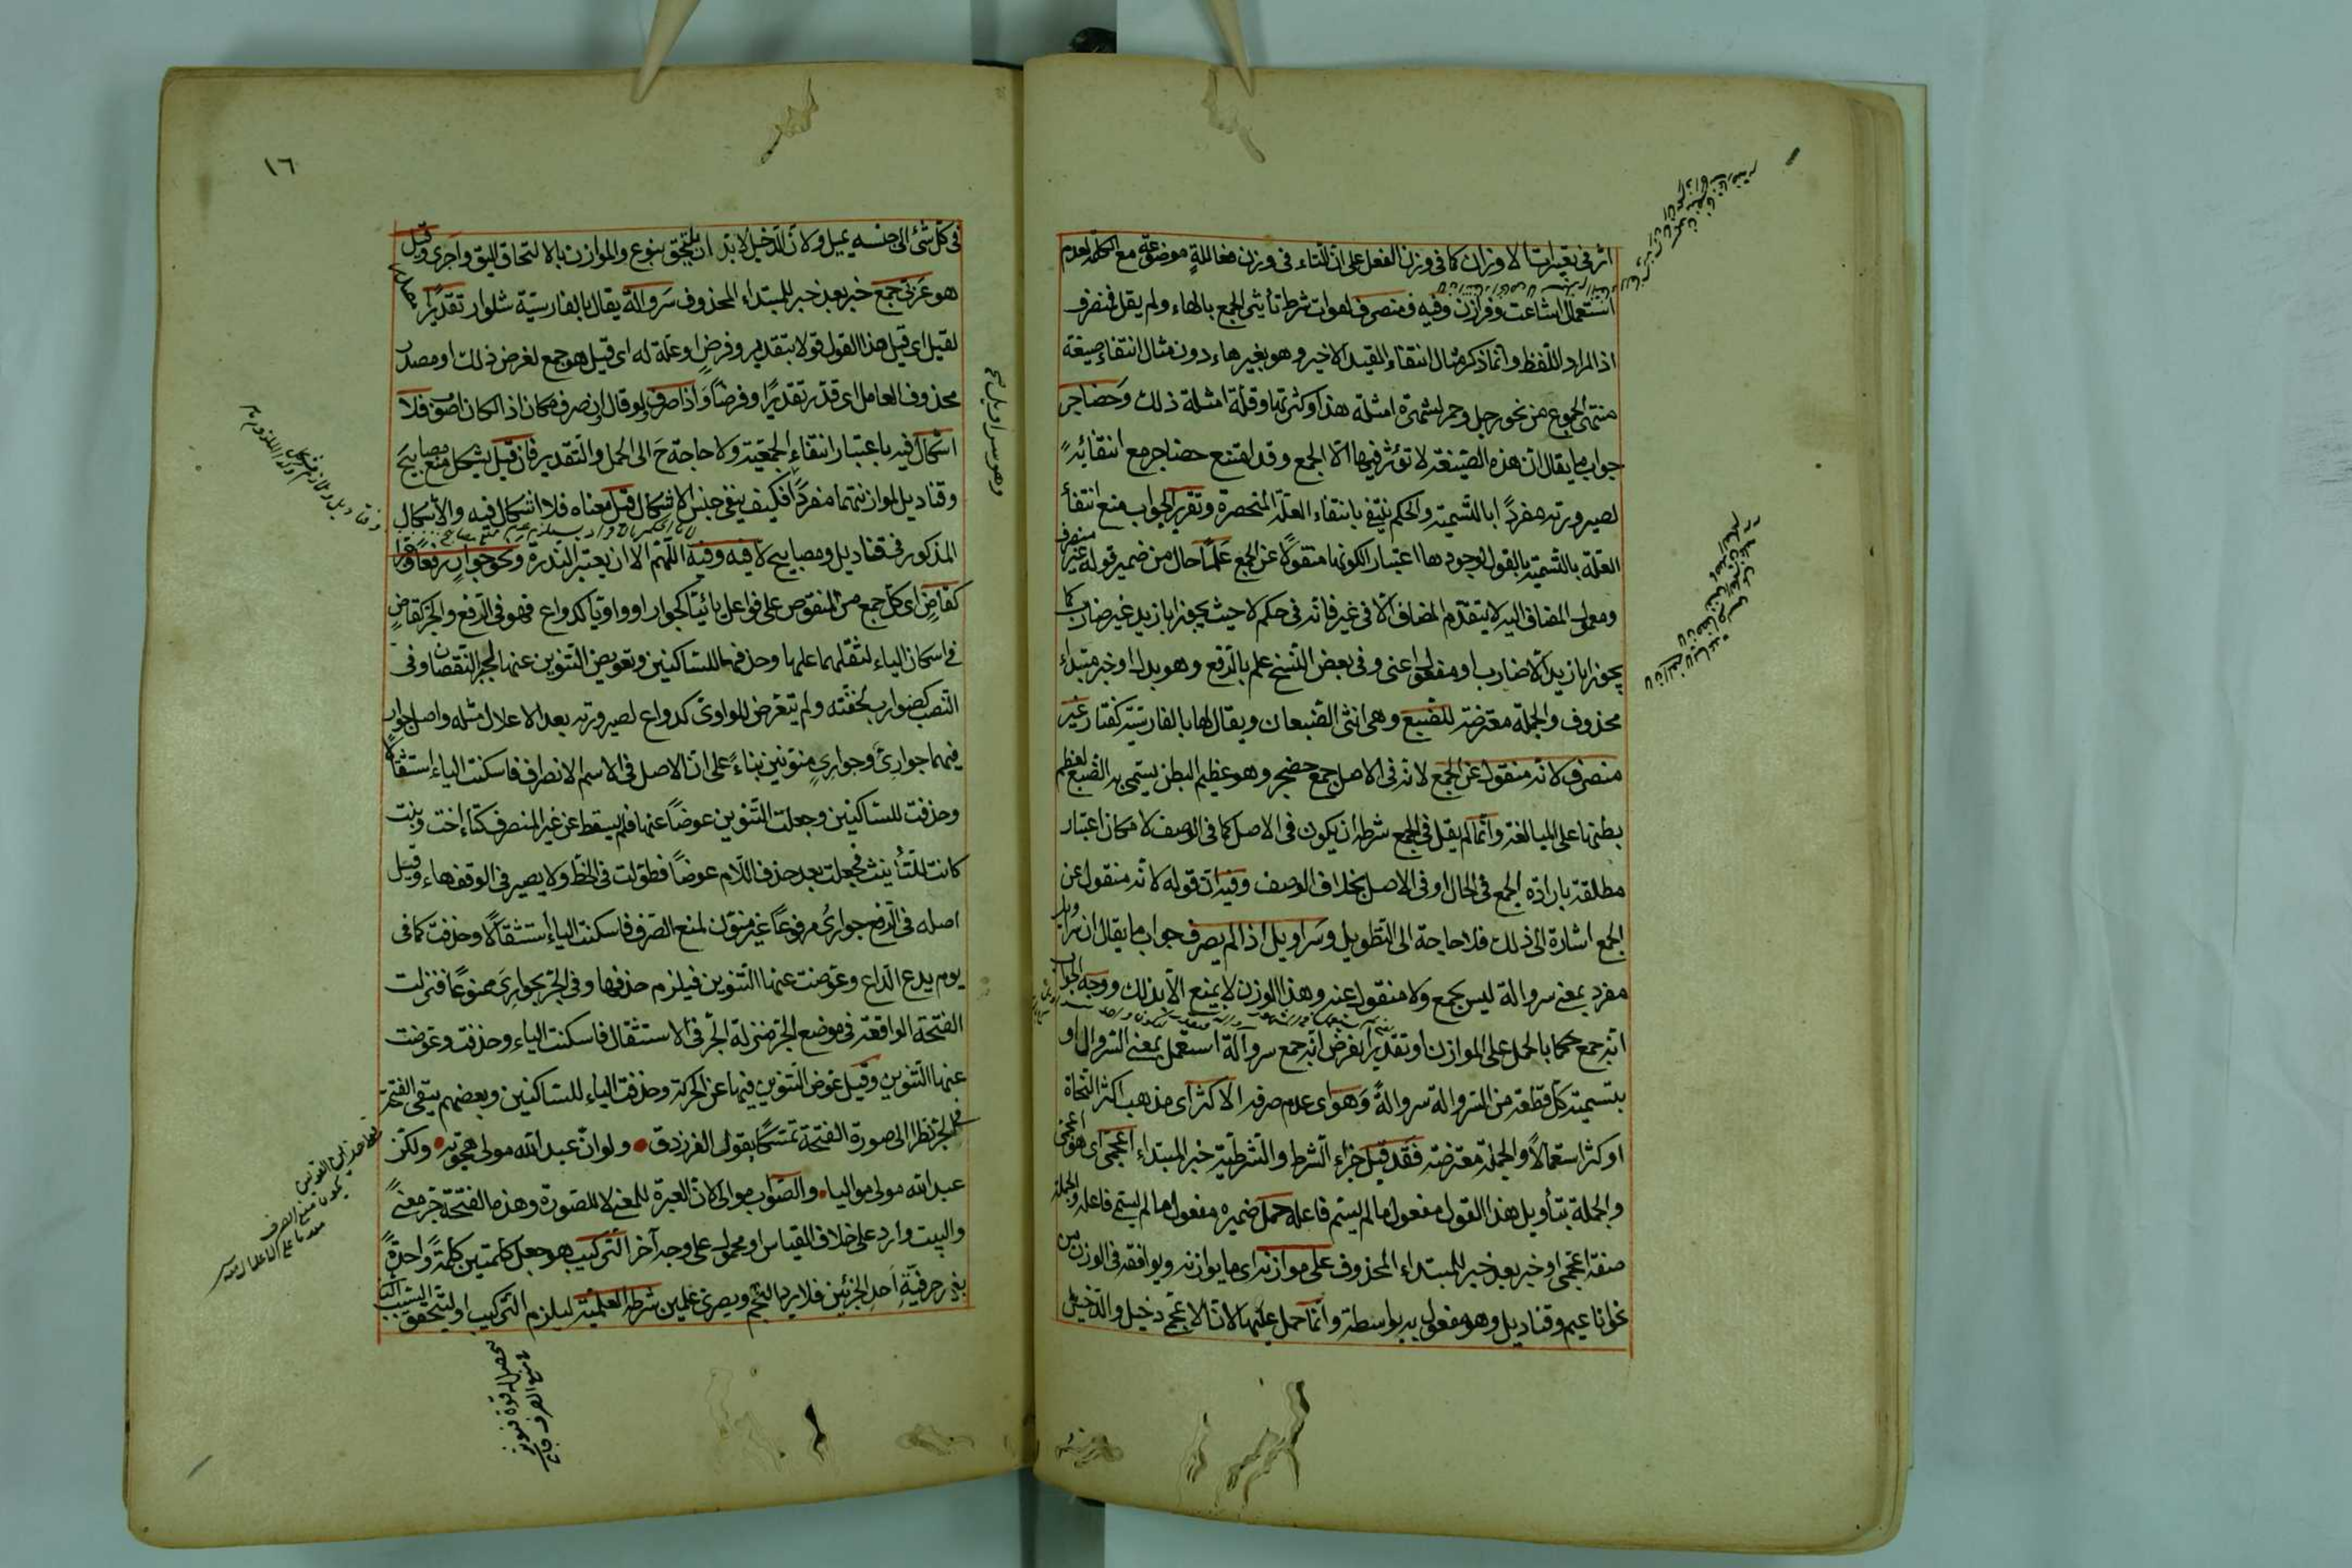 اثر في تغييرات الاوزان كما في وزن الفعل على ان التاء في وزن مفاعلة موضوعة مع الكلمة لعدم
استعمال اشاعث وفرازن وفيه ف منصرف لفوات شرط تأثير الجمع بالهاء ولم يقل فمنصرف
اذ المراد اللفظ وانما ذكر مثال انتفاء القيد الاخير وهو بغير هاء دون مثال انتفاء صيغة
منتهى الجموع من نحو رجل وحمر لشهرة امثلة هذا وكثرتها وقلة امثلة ذلك وحضاجر
جواب ما يقال ان هذه الصيغة لا تؤثر فيها الا الجمع وقد امتنع حضاجر مع انتفائه
لصيرورته مفردا بالتسمية والحكم ينتفي بانتفاء العلة المنحصرة وتقرير الجواب منع انتفأ
العلة بالتسمية بالقول بوجودها اعتبار الكونها منقولا عن الجمع علما حال من ضمير قوله غير منصرف
ومعمول المضاف اليه لا يتقدم المضاف الا في غير فانه في حكم لا حيث يجوز انا زيد غير ضارب كما
يجوز انا زيد الا ضارب او مفعول اعني وفي بعض النسخ علم بالرفع وهو بدل او خبر مبتداء
محذوف والجملة معترضة للضبع وهي انثى الضبعان ويقال لها بالفارسية كفتار غير
منصرف لانه منقول عن الجمع لانه في الاصل جمع حضجر وهو عظيم البطن يسمى به الضبع لعظم
بطنها على المبالغة وانما لم يقل في الجمع شرطه ان يكون في الاصل كما في الوصف لامكان اعتبار
مطلقة بارادة الجمع في الحال او في الاصل بخلاف الوصف وفيه ان قوله لانه منقول عن
الجمع اشارة الى ذلك فلا حاجة الى التطويل وسراويل اذا لم يصرف جواب ما يقال ان سراويل
مفرد بمعنى سروالة ليس بجمع ولا منقول عنه وهذا الوزن لا يمنع الا بذلك ووجه الجواب
انه جمع حكما بالحمل على الموازن او تقديرا بفرض انه جمع سروالة استعمل بمعنى السروال او
بتسمية كل قطعة من السروالة سروالة وهو اى عدم صرفه الاكثر اى مذهب اكثر النحاة
او كثر استعمالا والجملة معترضة فقد قيل جزاء الشرط والشرطية خبر المبتداء اعجمى اى هو اعجمى
والجملة بتأويل هذا القول مفعول ما لم يسم فاعله حمل ضميره مفعول ما لم يسم فاعله والجملة
صفة اعجمى او خبر بعد خبر للمبتداء المحذوف على موازنه اى ما يوازنه ويوافقه في الوزن من
نحو اناعيم وقناديل وهو مفعول به بواسطة وانما حمل عليها لان الاعجمي دخيل والدخيل
١٦
في كل شئ الى جنسه يميل ولان الدخيل لا بد ان يلتحق بنوع والموازن بالالتحاق اليق واحرى وقيل
هو عربي جمع خبر بعد خبر للمبتداء المحذوف سروالة يقال بالفارسية شلوار تقديرا
لقيل اى قيل هذا القول قولا بتقدير وفرض او علة له اى قيل هو جمع لغرض ذلك او مصدر
محذوف العامل اى قدر تقديرا وفرضا واذا صرف ولو قال ان صرف مكان اذا لكان اصوب فلا
اشكال فيه باعتبار انتفاء الجمعية ولا حاجة ح الى الحمل والتقدير فان قيل يشكل منع مصابيح
وقناديل لموازنتهما مفردا فكيف ينفي جنس الاشكال قيل معناه فلا اشكال فيه والاشكال
المذكور في قناديل ومصابيح لا فيه وفيه اللهم الا ان يعتبر الندرة ونحو جوار رفعا وجرا
كقاض اى كل جمع من المنقوص على فواعل يائيا كجوار او واويا كدواع فهو في الرفع والجر كقاض
في اسكان الياء لثقلهما عليها وحذفها للساكنين وتعويض التنوين عنها لجبر النقصان وفي
النصب كضوارب لخفته ولم يتعرض للواوى كدواع لصيرورته بعد الاعلال مثله واصل جوار
فيهما جوارى وجوارى منونين بناء على ان الاصل في الاسم الانصراف فاسكنت الياء استثقالا
وحذفت للساكنين وجعلت التنوين عوضا عنها فلم يسقط عن غير المنصرف كتاء اخت وبنت
كانت للتأنيث فجعلت بعد حذف اللام عوضا فطولت في الخط ولا يصير في الوقف هاء وقيل
اصله في الرفع جوارى مرفوعا غير منون لمنع الصرف فاسكنت الياء استثقالا وحذفت كما في
يوم يدع الداع وعوضت عنها التنوين فيلزم حذفها وفي الجر بجوارى ممنوعا فنزلت
الفتحة الواقعة في موضع الجر منزلة الجر في الاستثقال فاسكنت الياء وحذفت وعوضت
عنها التنوين وقيل عوض التنوين فيها عن الحركة وحذفت الياء للساكنين وبعضهم يبقى الفتحة
في الجر نظرا الى صورة الفتحة تمسكا بقول الفرزدق ولو ان عبد الله مولى هجوته ولكن
عبد الله مولى مواليا والصواب موال لان العبرة للمعنى لا للصورة وهذه الفتحة جر معنى
والبيت وارد على خلاف القياس او محمول على وجه آخر التركيب هو جعل كلمتين كلمة واحدة
بغير حرفية احد الجزئين فلا يرد النجم وبصرى علمين شرطه العلمية ليلزم التركيب او ليتحقق السبب
وهو سراويل